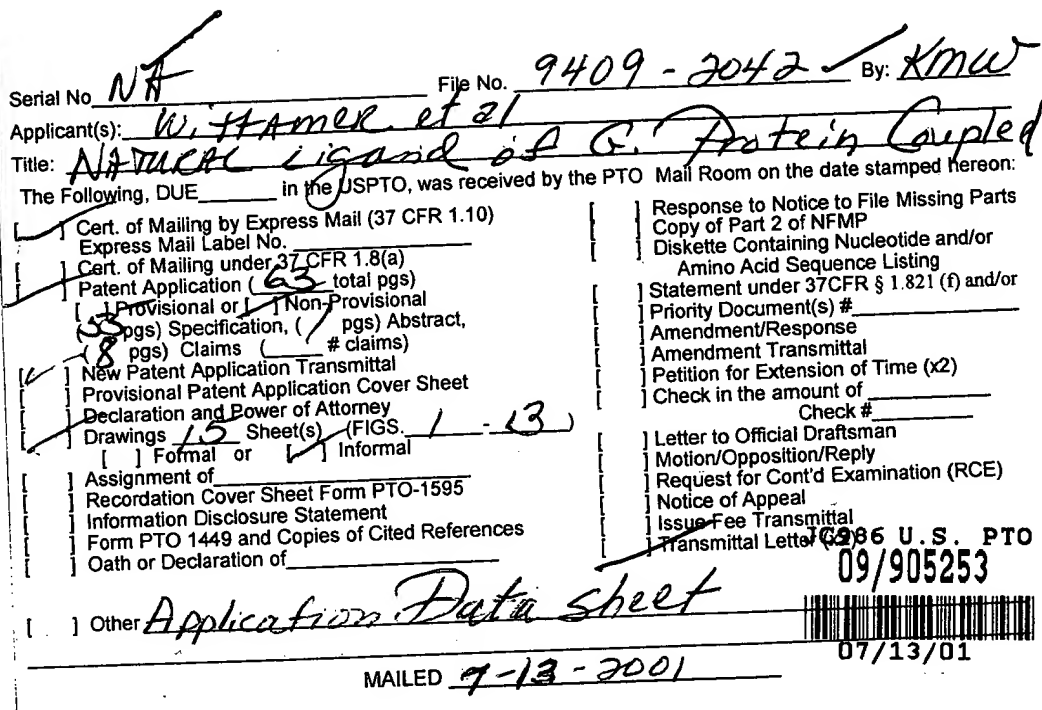 Serial No NA File No. 9409-2042 By: KMW
Applicant(s): Wittamer et al
Title: NATURAL Ligand of G. Protein Coupled
The Following, DUE in the USPTO, was received by the PTO Mail Room on the date stamped hereon:
[ ] Cert. of Mailing by Express Mail (37 CFR 1.10)
Express Mail Label No.
[ ] Cert. of Mailing under 37 CFR 1.8(a)
[ ] Patent Application ( 63 total pgs)
[ ] Provisional or [ ] Non-Provisional
( pgs) Specification, ( 1 pgs) Abstract,
( 8 pgs) Claims ( # claims)
[ ] New Patent Application Transmittal
[ ] Provisional Patent Application Cover Sheet
[ ] Declaration and Power of Attorney
[ ] Drawings 15 Sheet(s) (FIGS. 1 - 13 )
[ ] Formal or [ ] Informal
[ ] Assignment of
[ ] Recordation Cover Sheet Form PTO-1595
[ ] Information Disclosure Statement
[ ] Form PTO 1449 and Copies of Cited References
[ ] Oath or Declaration of
[ ] Response to Notice to File Missing Parts
[ ] Copy of Part 2 of NFMP
[ ] Diskette Containing Nucleotide and/or
Amino Acid Sequence Listing
[ ] Statement under 37CFR § 1.821 (f) and/or
[ ] Priority Document(s) #
[ ] Amendment/Response
[ ] Amendment Transmittal
[ ] Petition for Extension of Time (x2)
[ ] Check in the amount of
Check #
[ ] Letter to Official Draftsman
[ ] Motion/Opposition/Reply
[ ] Request for Cont'd Examination (RCE)
[ ] Notice of Appeal
[ ] Issue Fee Transmittal
[ ] Transmittal Letter
U.S. PTO
09/905253
07/13/01
[ ] Other Application Data Sheet
MAILED 7-13-2001